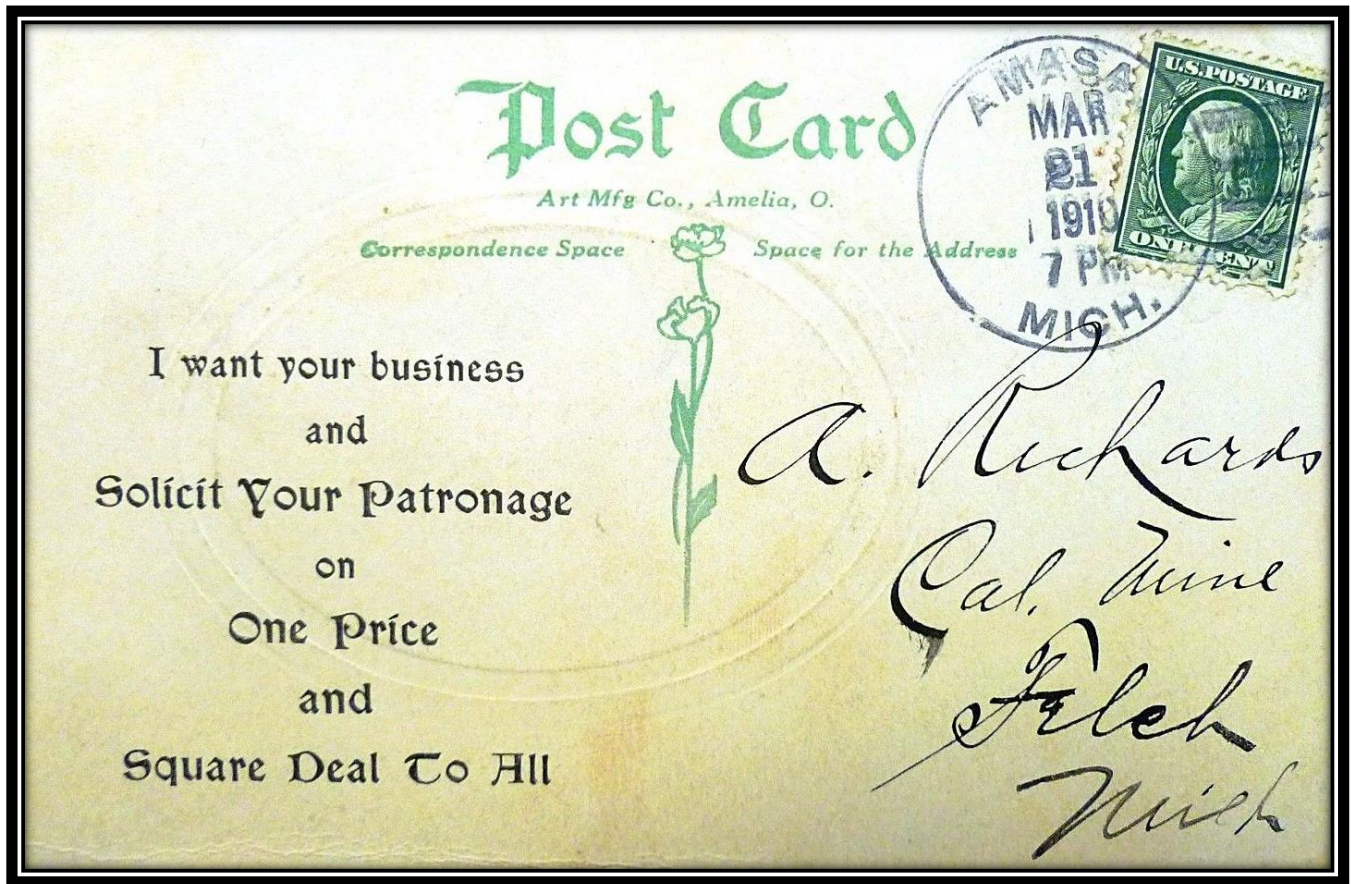 Post Card
Art Mfg Co., Amelia, O.
Correspondence Space
Space for the Address
AMASA
MAR
21
1910
7 PM
MICH.
U.S.POSTAGE
ONE CENT
I want your business
and
Solicit Your Patronage
on
One Price
and
Square Deal To All
A. Richards
Cal. Mine
Felch
Mich